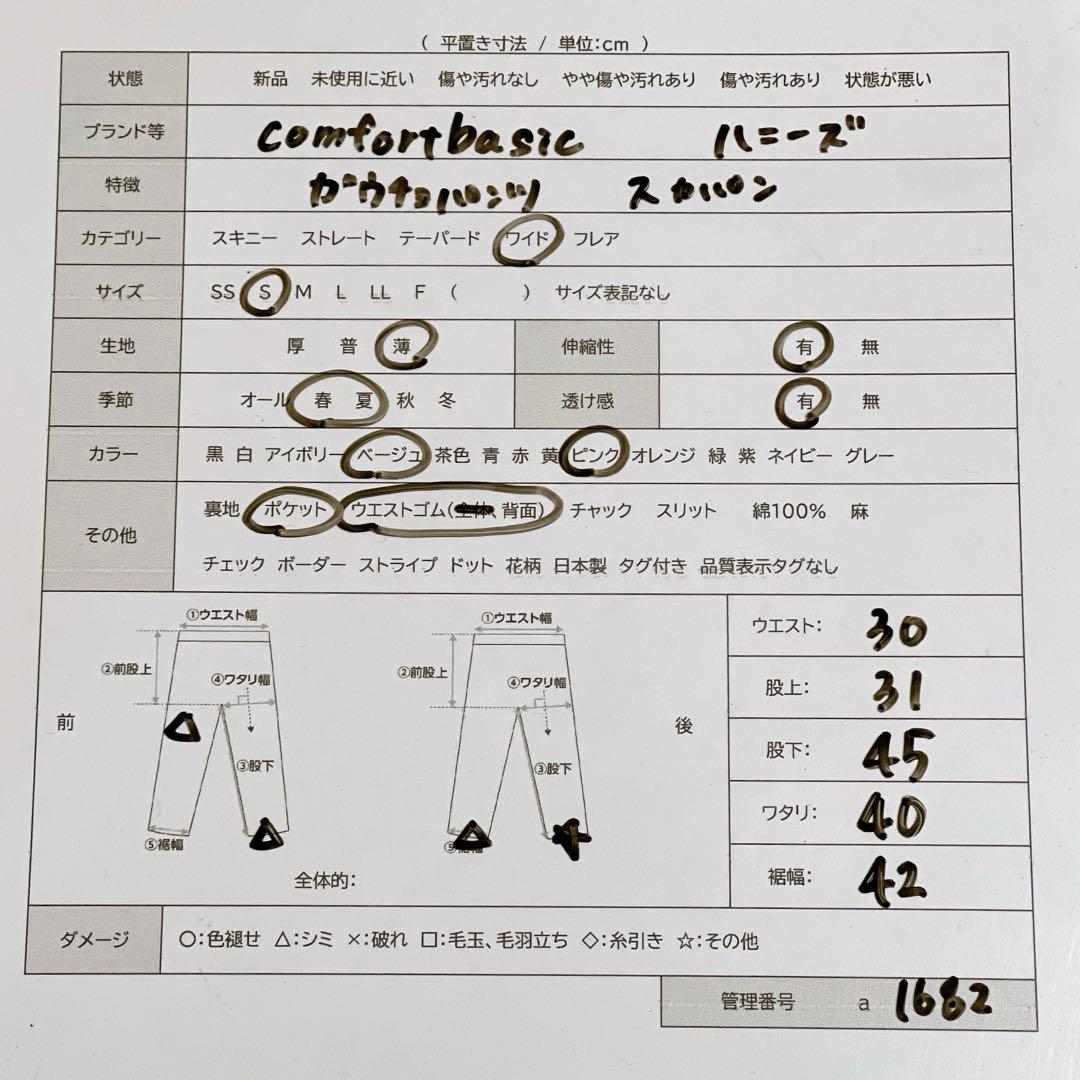 ( 平置き寸法 / 単位:cm )
状態 新品 未使用に近い 傷や汚れなし やや傷や汚れあり 傷や汚れあり 状態が悪い
ブランド等 comfortbasic ハニーズ
特徴 ガウチョパンツ スカパン
カテゴリー スキニー ストレート テーパード ワイド フレア
サイズ SS S M L LL F ( ) サイズ表記なし
生地 厚 普 薄 伸縮性 有 無
季節 オール 春 夏 秋 冬 透け感 有 無
カラー 黒 白 アイボリー ベージュ 茶色 青 赤 黄 ピンク オレンジ 緑 紫 ネイビー グレー
その他 裏地 ポケット ウエストゴム(全体、背面) チャック スリット 綿100% 麻
チェック ボーダー ストライプ ドット 花柄 日本製 タグ付き 品質表示タグなし
前
①ウエスト幅
②前股上
④ワタリ幅
③股下
⑤裾幅
①ウエスト幅
②前股上
④ワタリ幅
③股下
⑤裾幅
後
全体的:
ウエスト: 30
股上: 31
股下: 45
ワタリ: 40
裾幅: 42
ダメージ ○:色褪せ △:シミ ×:破れ □:毛玉、毛羽立ち ◇:糸引き ☆:その他
管理番号 a 1682